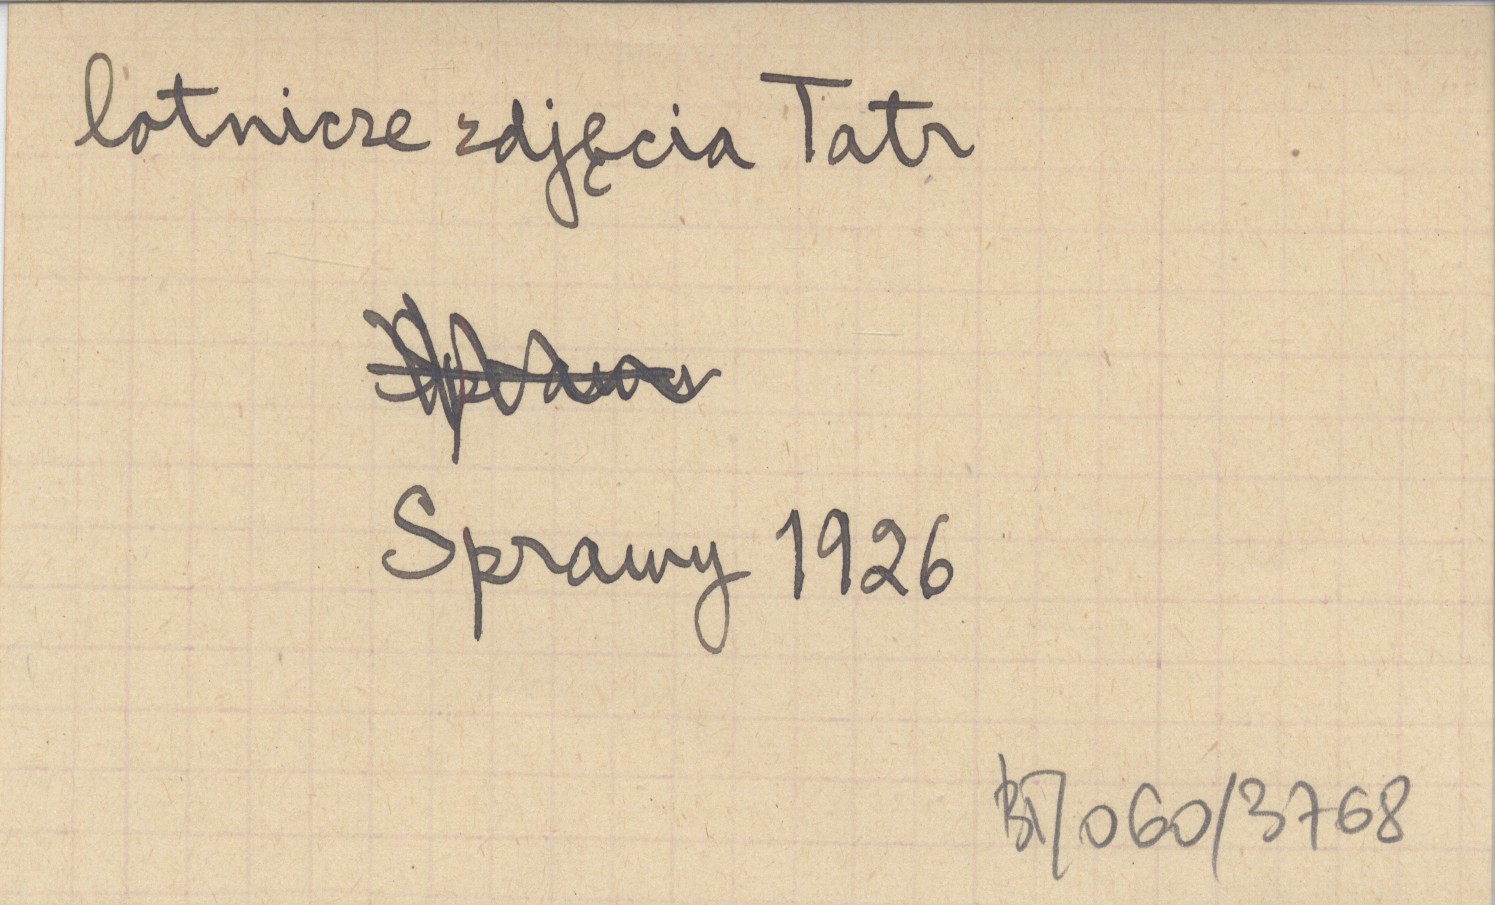 lotnicze zdjęcia Tatr
Sprawy 1926
BT/060/3768